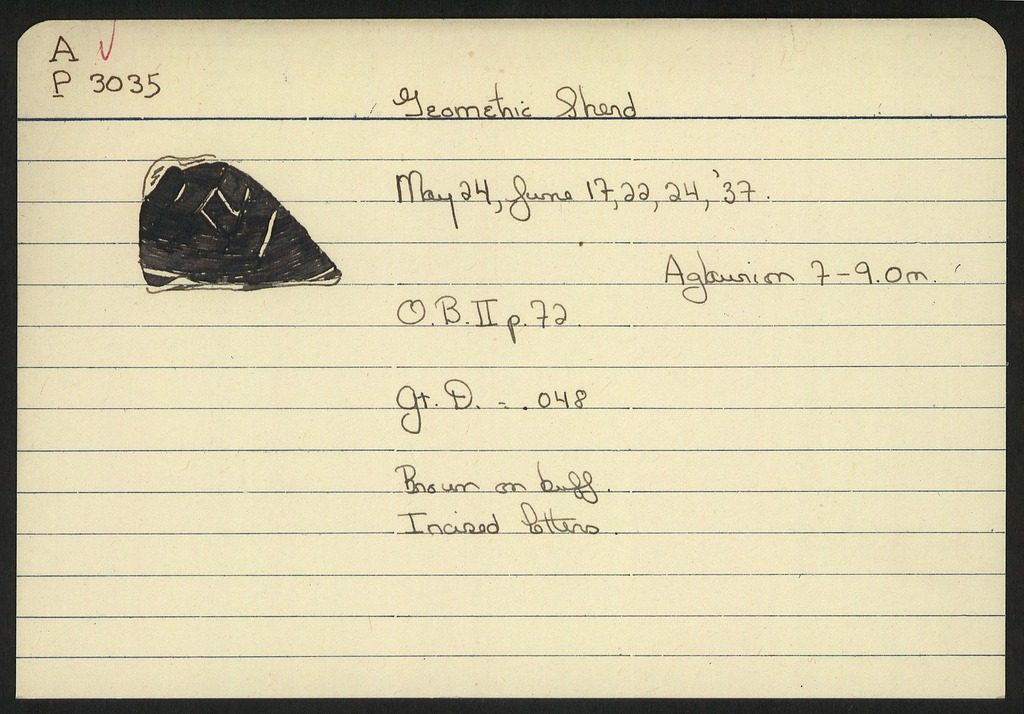 A ✓
P 3035
Geometric Sherd
May 24, June 17, 22, 24, '37.
Aglaurion 7-9.0m.
O.B. II p. 72.
Gr. D. - .048
Brown on buff.
Incised letters.